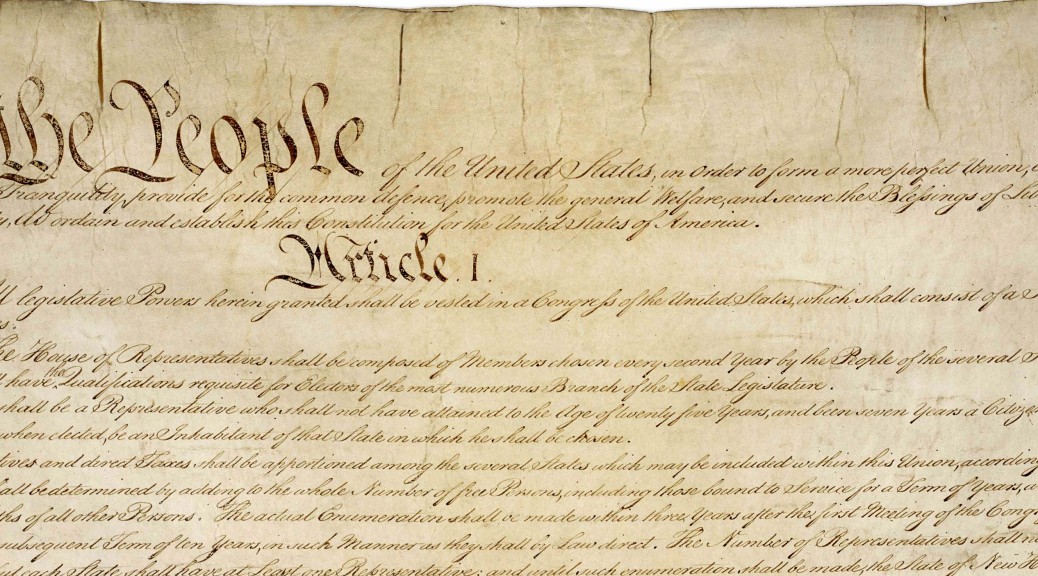 the People of the United States, in Order to form a more perfect Union,
Tranquility, provide for the common defence, promote the general Welfare, and secure the Blessings of
do ordain and establish this Constitution for the United States of America.
Article. I.
legislative Powers herein granted shall be vested in a Congress of the United States, which shall consist of a
House of Representatives shall be composed of Members chosen every second Year by the People of the several
have the Qualifications requisite for Electors of the most numerous Branch of the State Legislature.
shall be a Representative who shall not have attained to the Age of twenty five Years, and been seven Years a
when elected, be an Inhabitant of that State in which he shall be chosen.
and direct Taxes shall be apportioned among the several States which may be included within this Union, according
be determined by adding to the whole Number of free Persons, including those bound to Service for a Term of Years,
of all other Persons. The actual Enumeration shall be made within three Years after the first Meeting of the
subsequent Term of ten Years, in such Manner as they shall by Law direct. The Number of Representatives shall
each State shall have at Least one Representative; and until such enumeration shall be made, the State of New